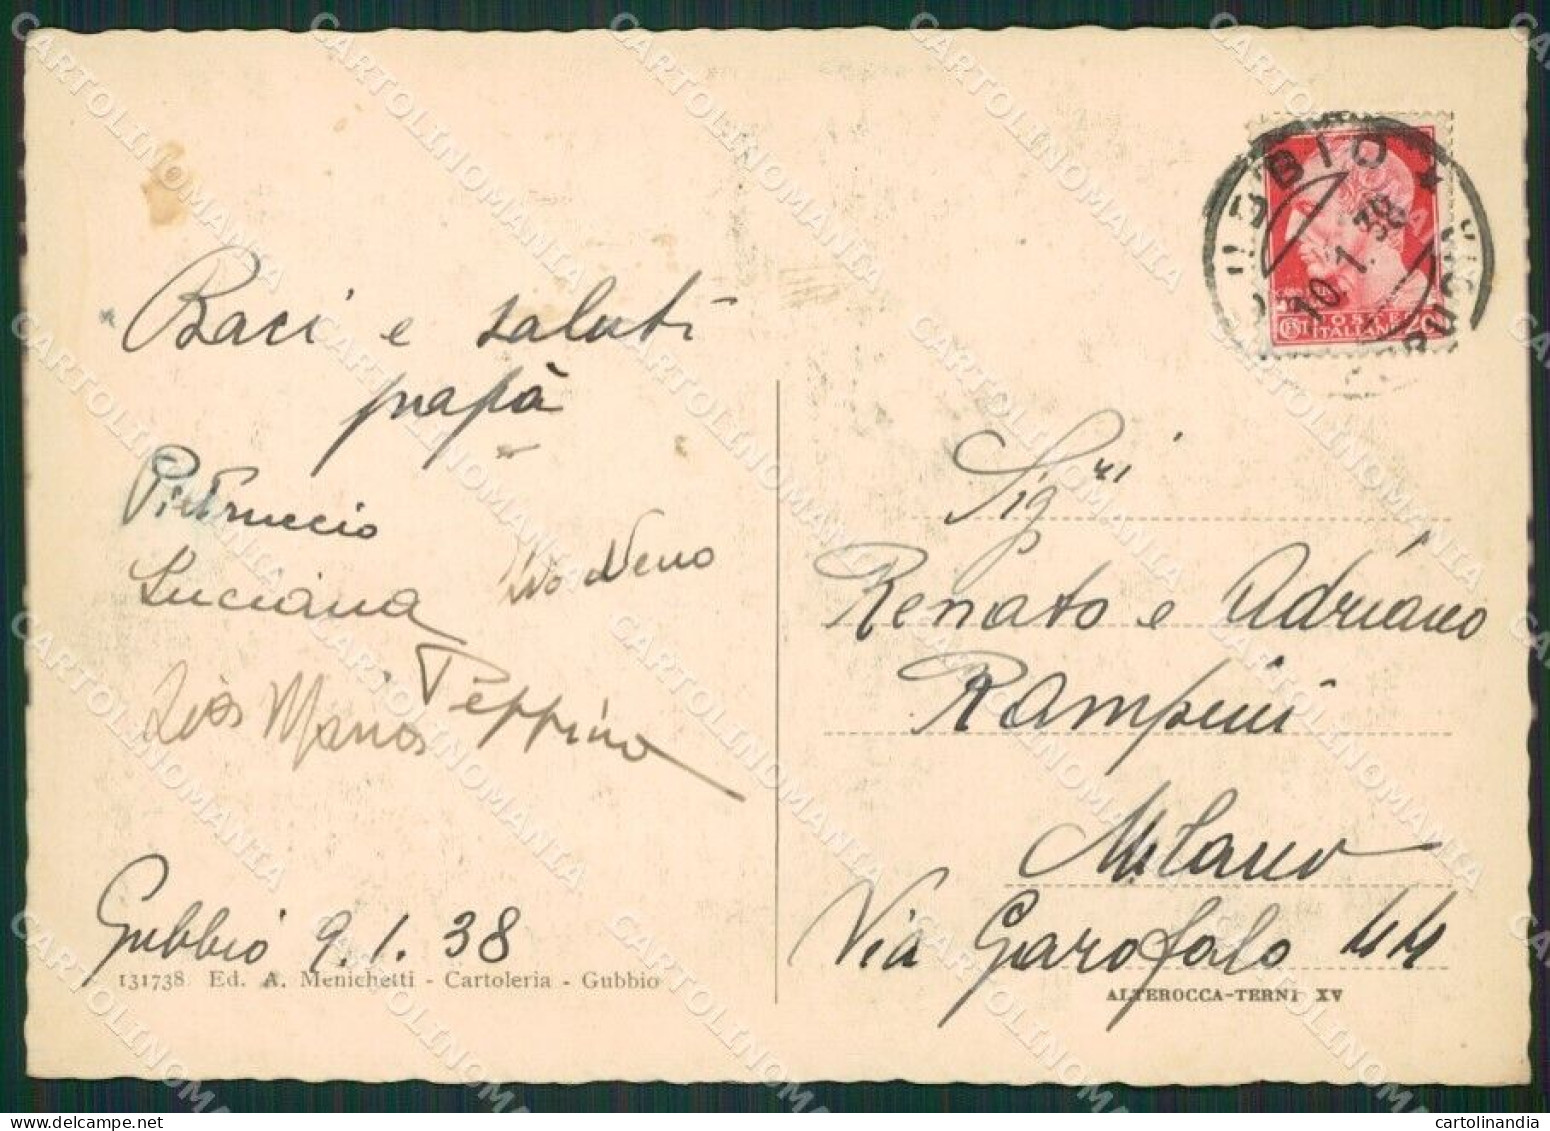 Baci e saluti
papà
Pietruccio
Luciana
Zio Neno
Peppino
Zia Maria
Gubbio 9.1.38
131738 Ed. A. Menichetti - Cartoleria - Gubbio
GUBBIO
10.1.38
POSTE
ITALIANE
Sigri
Renato e Adriano
Rampini
Milano
Via Garofalo 44
ALTEROCCA-TERNI XV
CARTOLINOMANIA
cartolinandia